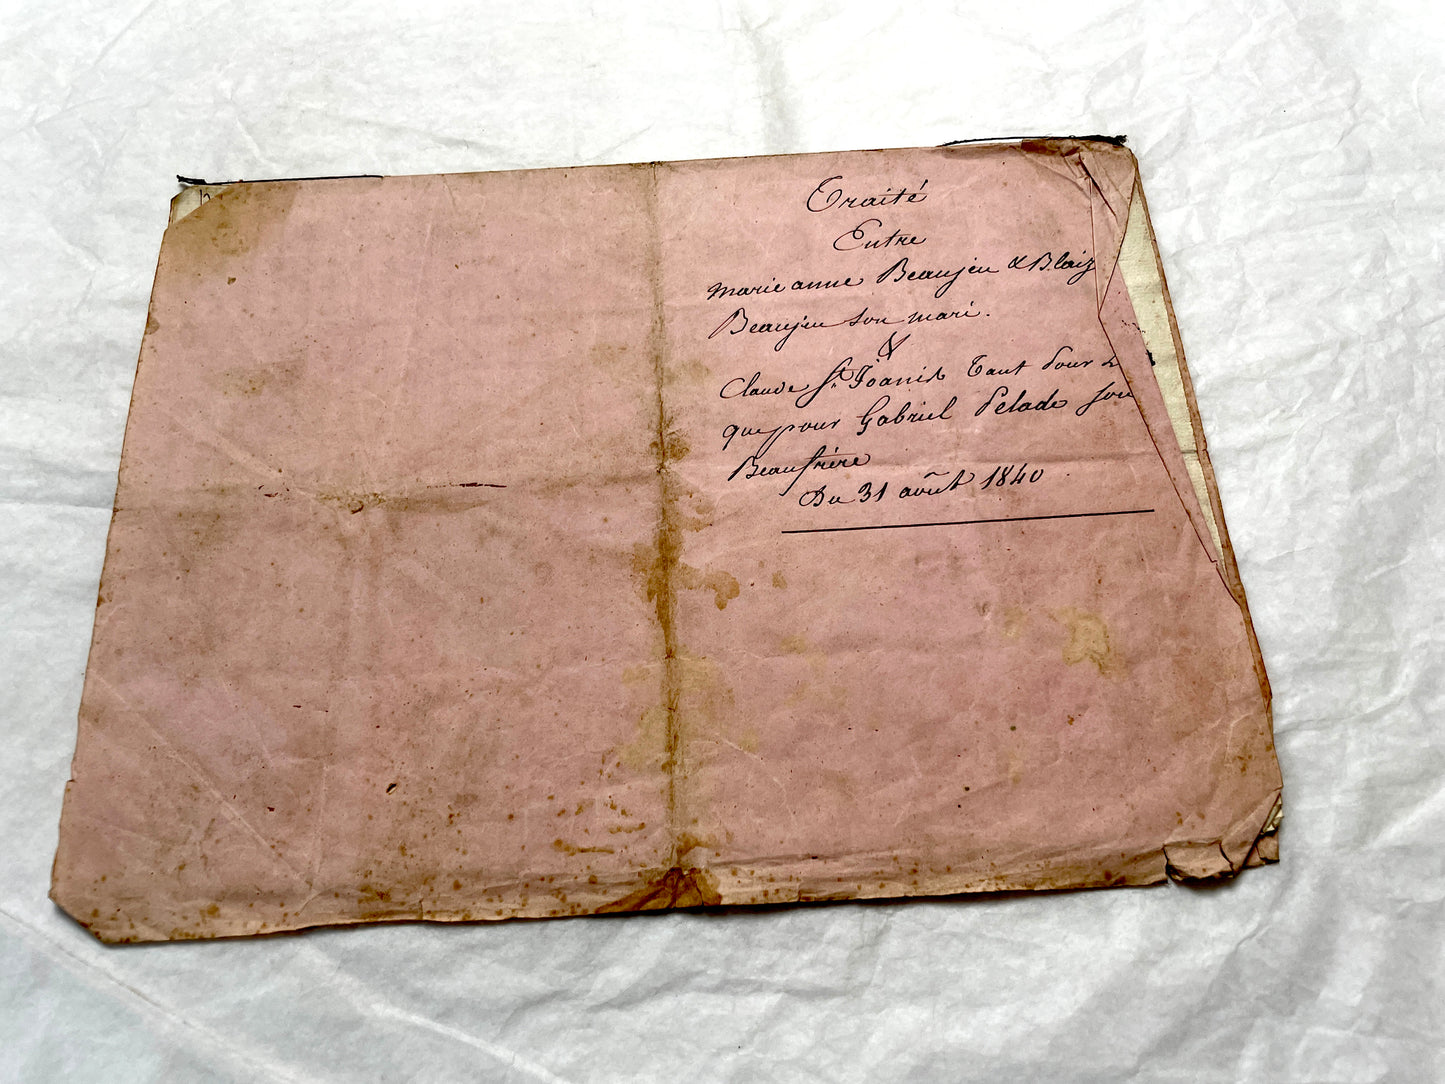 Traité
Entre
Marie anne Beaujeu & Blaiz
Beaujeu son mari.
&
Claude St. Joanis tant pour L
que pour Gabriel Pelade son
Beaufrère
Du 31 août 1840